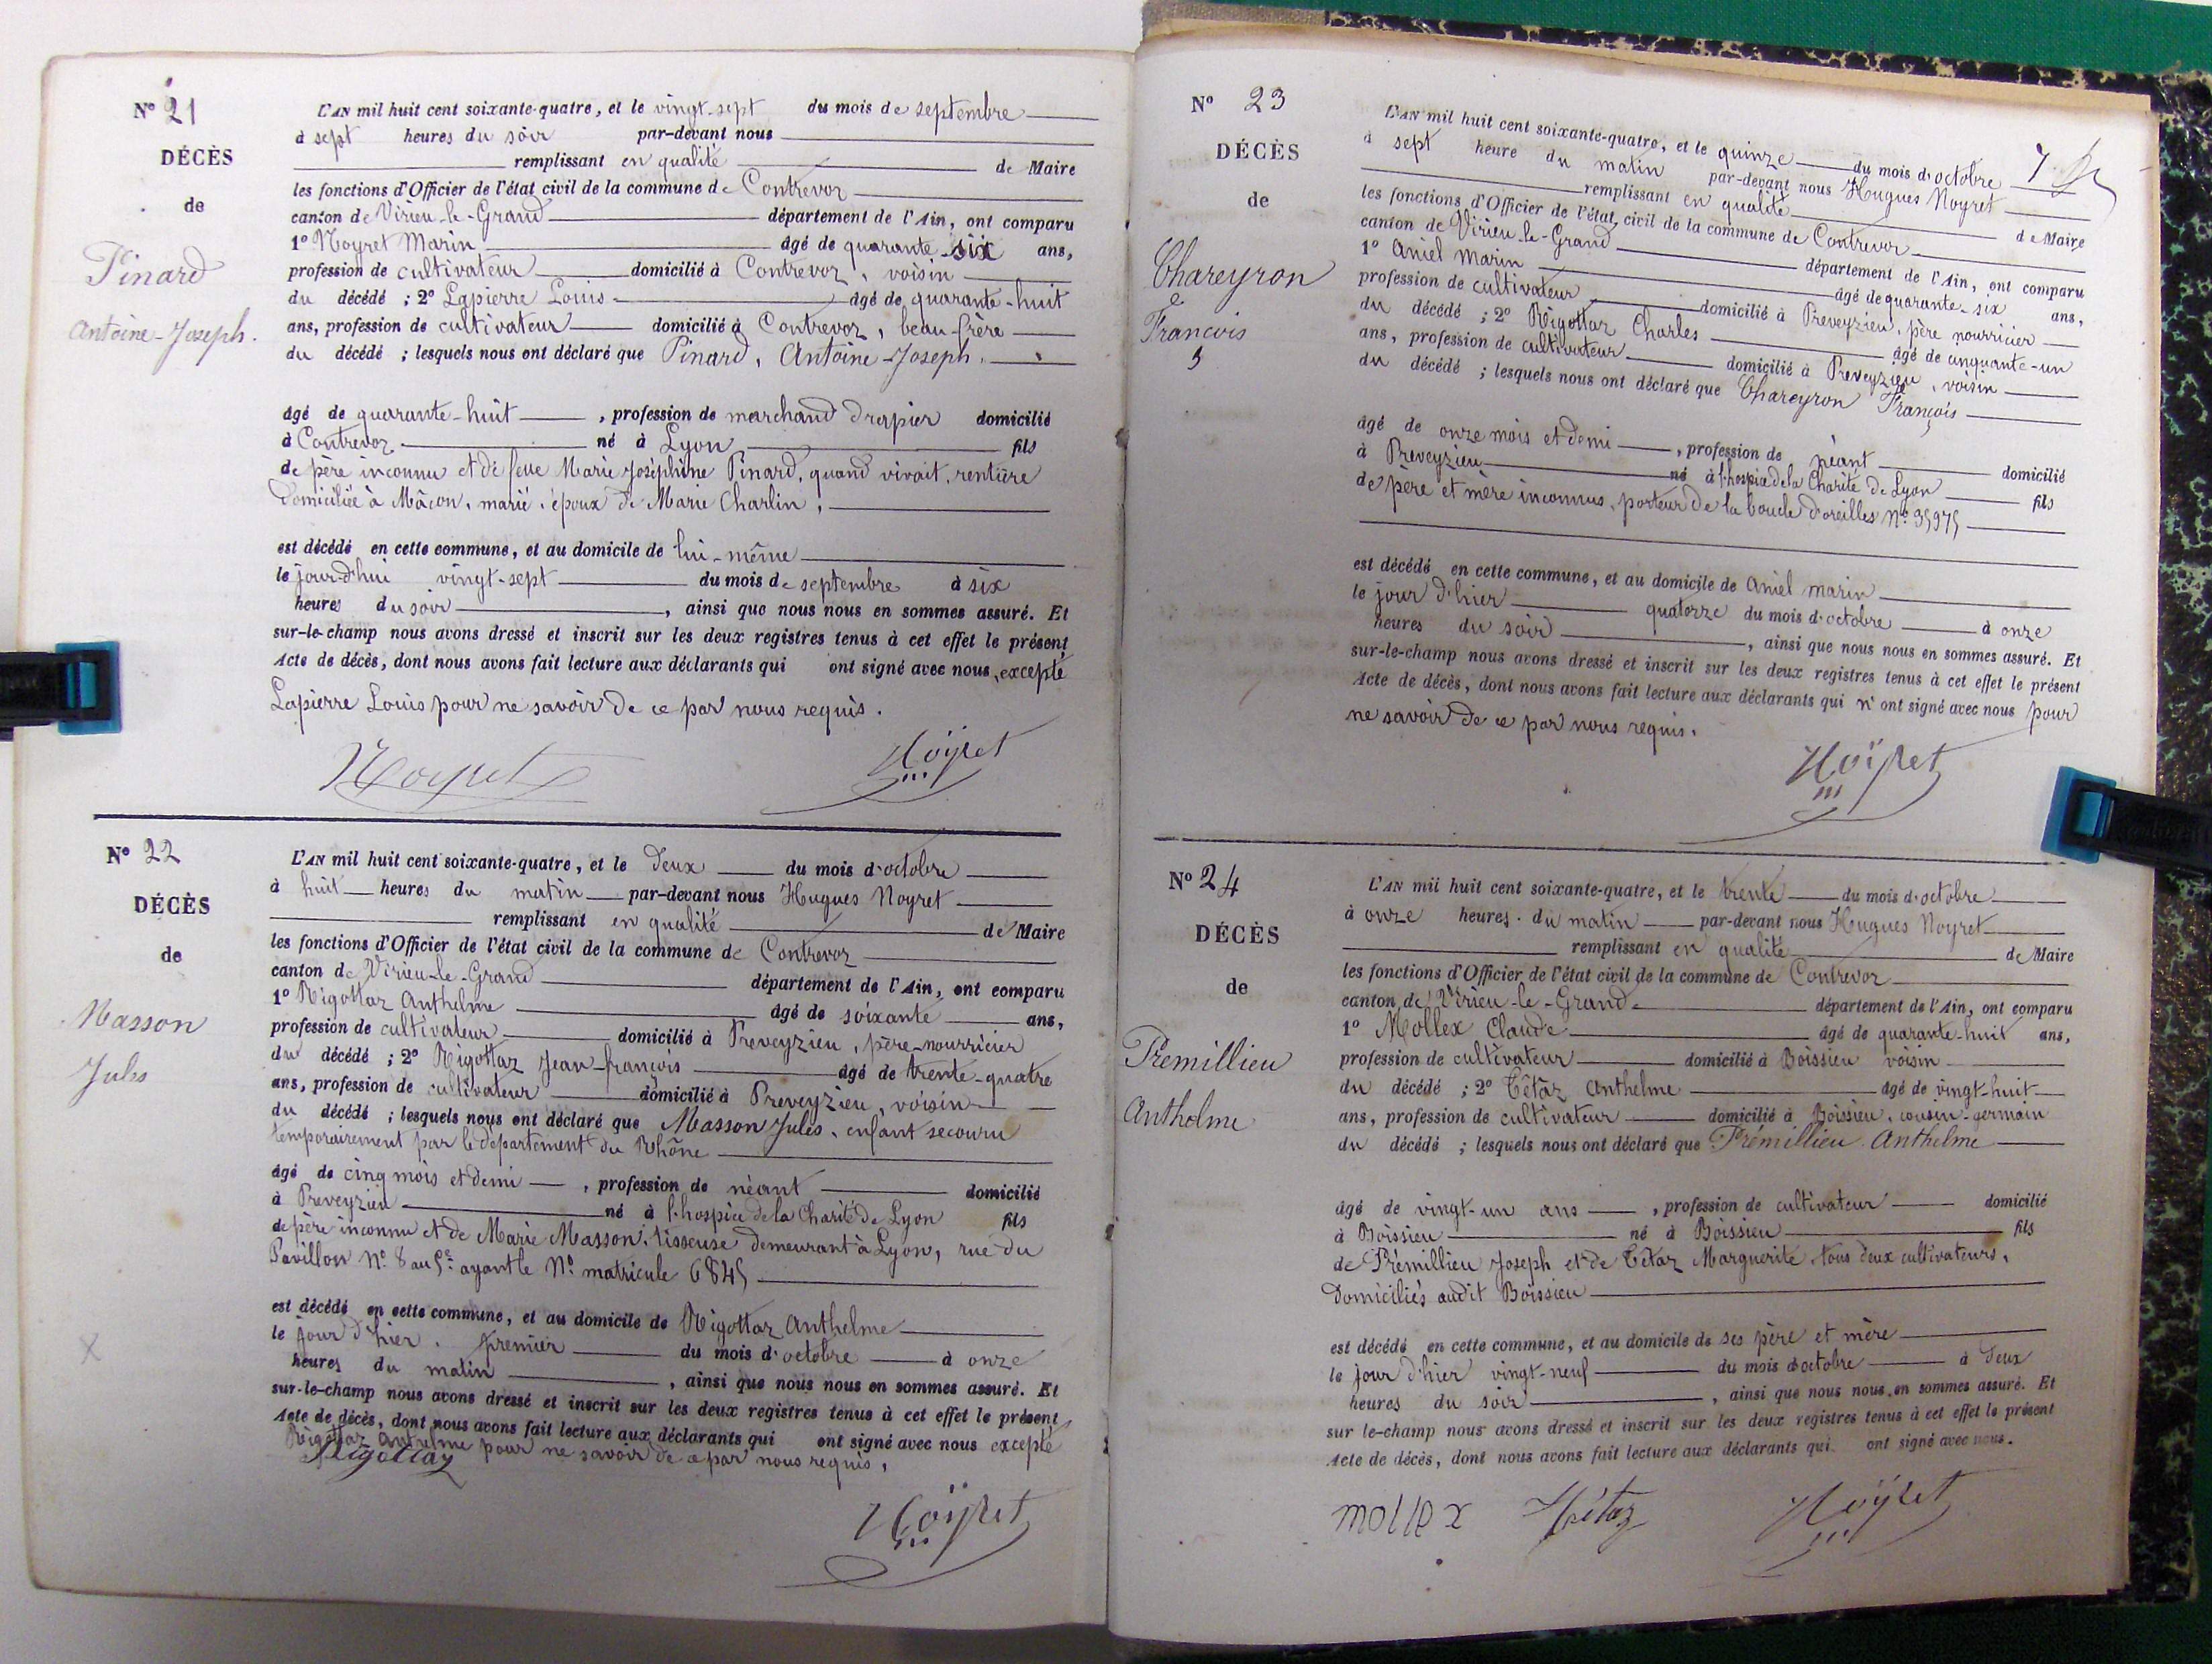 N° 21
DÉCÈS
de
Pinard
Antoine-Joseph.
L'AN mil huit cent soixante-quatre, et le vingt-sept du mois de septembre
à sept heures du soir par-devant nous
remplissant en qualité de Maire
les fonctions d'Officier de l'état civil de la commune de Contrevoz
canton de Virieu-le-Grand département de l'Ain, ont comparu
1° Noyret Marin âgé de quarante-six ans,
profession de cultivateur domicilié à Contrevoz, voisin
du décédé ; 2° Lapierre Louis âgé de quarante-huit
ans, profession de cultivateur domicilié à Contrevoz, beau-frère
du décédé ; lesquels nous ont déclaré que Pinard, Antoine-Joseph.
âgé de quarante-huit , profession de marchand drapier domicilié
à Contrevoz né à Lyon fils
de père inconnu et de feue Marie Joséphine Pinard, quand vivait, rentière
domiciliée à Mâcon, marié, époux de Marie Charlin,
est décédé en cette commune, et au domicile de lui-même
le jour-d'hui vingt-sept du mois de septembre à six
heures du soir , ainsi que nous nous en sommes assuré. Et
sur-le-champ nous avons dressé et inscrit sur les deux registres tenus à cet effet le présent
Acte de décès, dont nous avons fait lecture aux déclarants qui ont signé avec nous, excepté
Lapierre Louis pour ne savoir de ce par nous requis.
Noyret Noÿret
N° 22
DÉCÈS
de
Masson
Jules
L'AN mil huit cent soixante-quatre, et le deux du mois d'octobre
à huit heures du matin par-devant nous Hugues Noyret
remplissant en qualité de Maire
les fonctions d'Officier de l'état civil de la commune de Contrevoz
canton de Virieu-le-Grand département de l'Ain, ont comparu
1° Rigottaz Anthelme âgé de soixante ans,
profession de cultivateur domicilié à Preveyzieu, père-nourricier
du décédé ; 2° Rigottaz Jean-françois âgé de trente-quatre
ans, profession de cultivateur domicilié à Preveyzieu, voisin
du décédé ; lesquels nous ont déclaré que Masson Jules, enfant secouru
temporairement par le département du Rhône
âgé de cinq mois et demi , profession de néant domicilié
à Preveyzieu né à l'hospice de la Charité de Lyon fils
de père inconnu et de Marie Masson, tisseuse demeurant à Lyon, rue du
Pavillon N° 8 au 5e ayant le N° matricule 6845
est décédé en cette commune, et au domicile de Rigottaz Anthelme
le jour d'hier. premier du mois d'octobre à onze
heures du matin , ainsi que nous nous en sommes assuré. Et
sur-le-champ nous avons dressé et inscrit sur les deux registres tenus à cet effet le présent
Acte de décès, dont nous avons fait lecture aux déclarants qui ont signé avec nous excepté
Rigottaz Anthelme pour ne savoir de ce par nous requis,
Rigottaz
Noÿret
N° 23
DÉCÈS
de
Chareyron
François
7
L'AN mil huit cent soixante-quatre, et le quinze du mois d'octobre
à sept heure du matin par-devant nous Hugues Noyret
remplissant en qualité de Maire
les fonctions d'Officier de l'état civil de la commune de Contrevoz
canton de Virieu-le-Grand département de l'Ain, ont comparu
1° Aniel Marin âgé de quarante-six ans,
profession de cultivateur domicilié à Preveyzieu, père nourricier
du décédé ; 2° Rigottaz Charles âgé de cinquante-un
ans, profession de cultivateur domicilié à Preveyzieu, voisin
du décédé ; lesquels nous ont déclaré que Chareyron François
âgé de onze mois et demi , profession de néant domicilié
à Preveyzieu né à l'hospice de la Charité de Lyon fils
de père et mère inconnus, porteur de la boucle d'oreilles N° 35975
est décédé en cette commune, et au domicile de Aniel Marin
le jour d'hier quatorze du mois d'octobre à onze
heures du soir , ainsi que nous nous en sommes assuré. Et
sur-le-champ nous avons dressé et inscrit sur les deux registres tenus à cet effet le présent
Acte de décès, dont nous avons fait lecture aux déclarants qui n'ont signé avec nous pour
ne savoir de ce par nous requis.
Noÿret
N° 24
DÉCÈS
de
Prémillieu
Anthelme
L'AN mil huit cent soixante-quatre, et le trente du mois d'octobre
à onze heures du matin par-devant nous Hugues Noyret
remplissant en qualité de Maire
les fonctions d'Officier de l'état civil de la commune de Contrevoz
canton de Virieu-le-Grand département de l'Ain, ont comparu
1° Mollex Claude âgé de quarante-huit ans,
profession de cultivateur domicilié à Boissieu voisin
du décédé ; 2° Tétaz Anthelme âgé de vingt-huit
ans, profession de cultivateur domicilié à Boissieu, cousin-germain
du décédé ; lesquels nous ont déclaré que Prémillieu Anthelme
âgé de vingt-un ans , profession de cultivateur domicilié
à Boissieu né à Boissieu fils
de Prémillieu Joseph et de Tétaz Marguerite tous deux cultivateurs,
domiciliés audit Boissieu
est décédé en cette commune, et au domicile de ses père et mère
le jour d'hier vingt-neuf du mois d'octobre à deux
heures du soir , ainsi que nous nous en sommes assuré. Et
sur le-champ nous avons dressé et inscrit sur les deux registres tenus à cet effet le présent
Acte de décès, dont nous avons fait lecture aux déclarants qui ont signé avec nous.
mollex Tétaz Noÿret